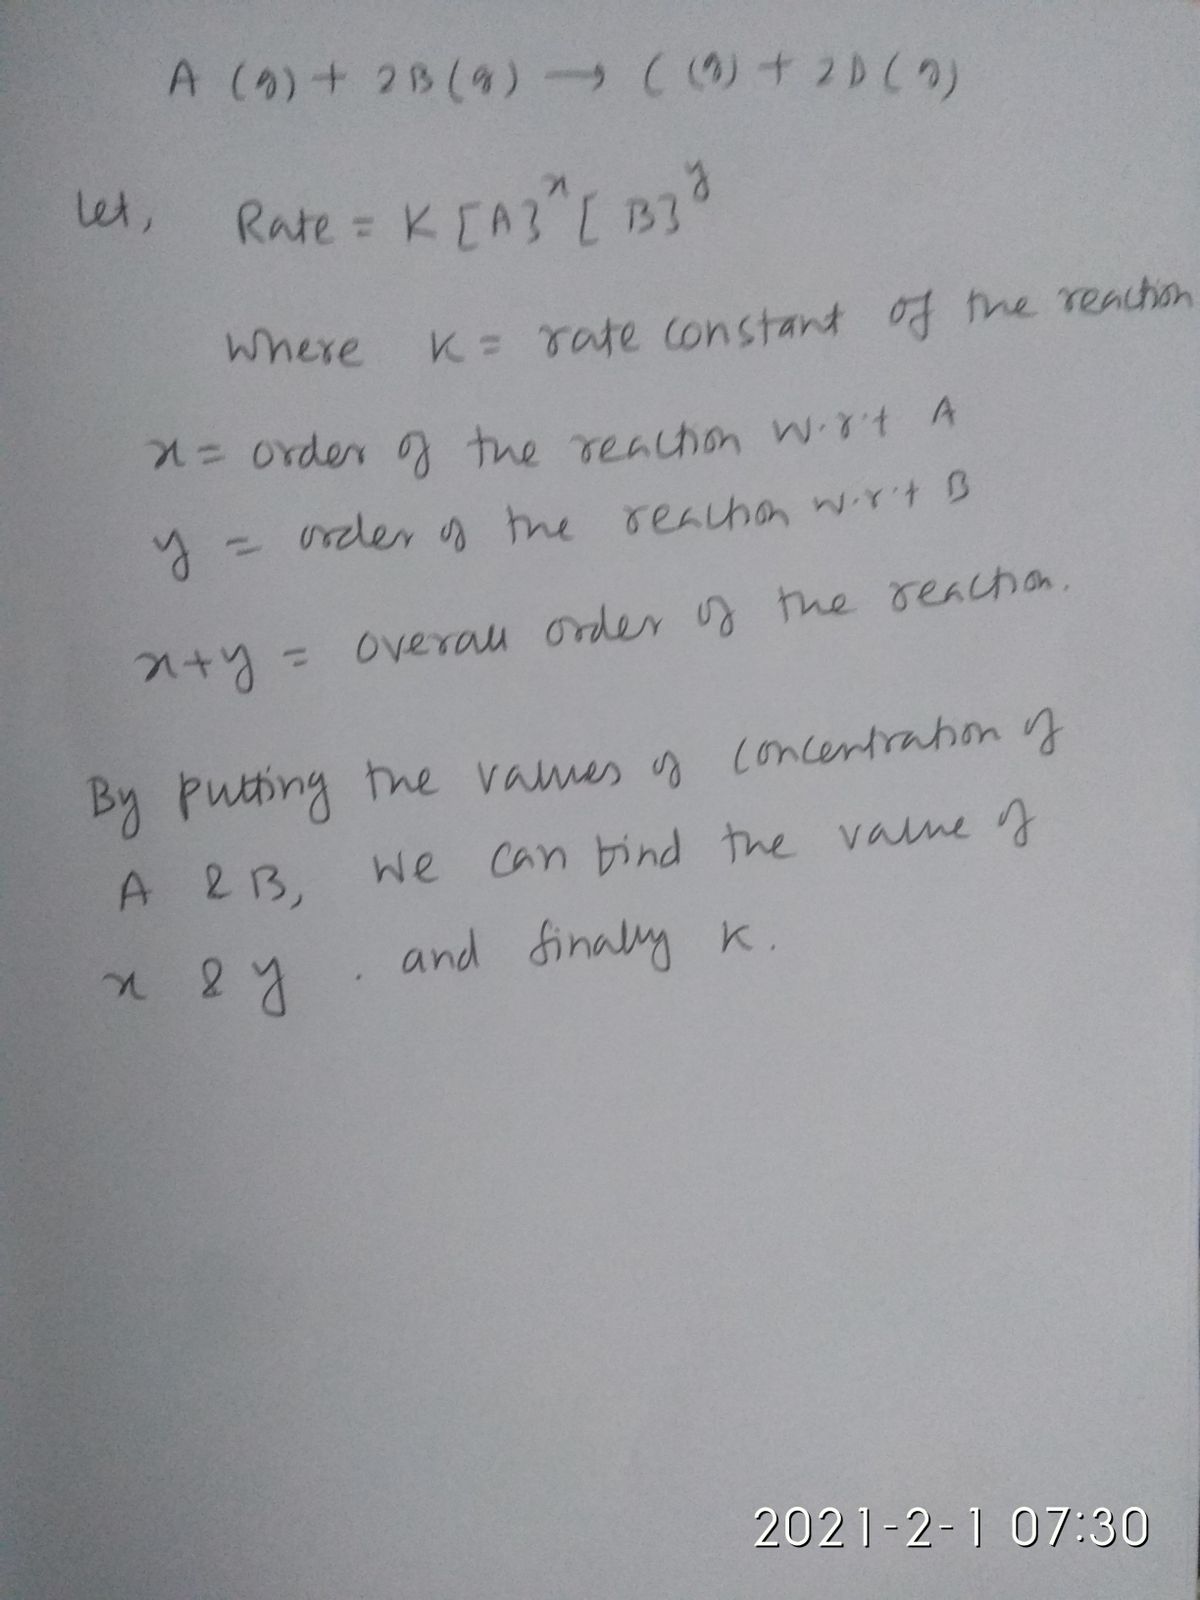 A (g) + 2B (g) → C (g) + 2D (g)
Let, Rate = K [A]^x [B]^y
Where K = rate constant of the reaction
x = order of the reaction w.r.t A
y = order of the reaction w.r.t B
x+y = overall order of the reaction.
By putting the values of concentration of
A & B, We can find the value of
x & y . and finally K.
2021-2-1 07:30